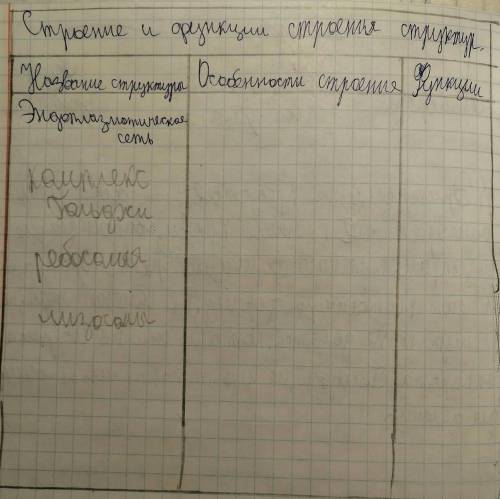 Строение и функции строения структур.
Название структуры Особенности строения Функции
Эндоплазматическая
сеть
комплекс
Гольджи
рибосомы
лизосомы